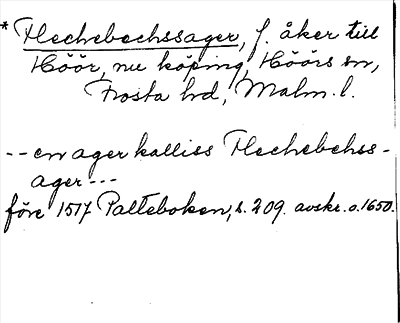 * Flechebechssager, f. åker till
Höör, nu köping, Höörs sn,
Frosta hd, Malm. l.
-- en ager kalliss Flechebehss-
ager ---
före 1517 Palteboken, s. 209. avskr. o. 1650.